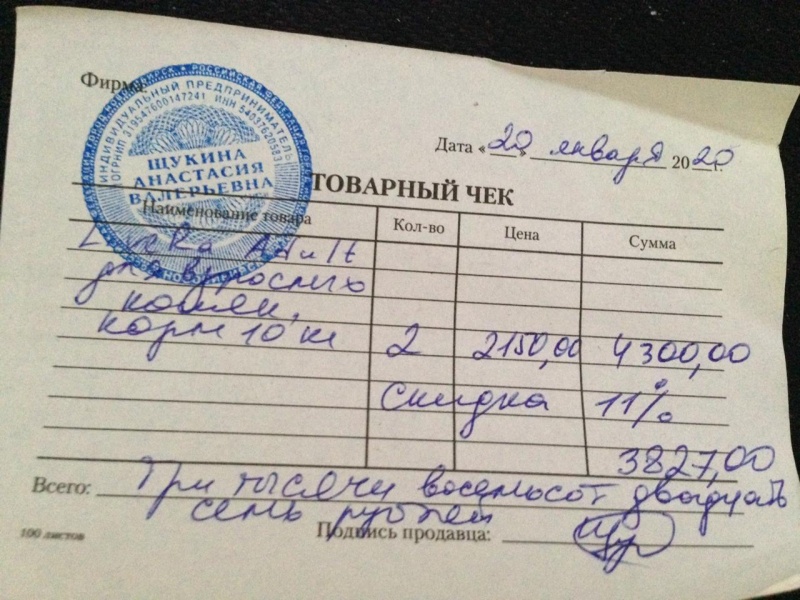 Фирма
РОССИЙСКАЯ ФЕДЕРАЦИЯ
ИНДИВИДУАЛЬНЫЙ ПРЕДПРИНИМАТЕЛЬ
ОГРНИП 319547600147241 ИНН 540376205831
ЩУКИНА
АНАСТАСИЯ
ВАЛЕРЬЕВНА
Дата «20» января 2020 г.
ТОВАРНЫЙ ЧЕК
Наименование товара Кол-во Цена Сумма
Adult
для взрослых
кошек,
корм 10 кг 2 2150,00 4300,00
Скидка 11%
3827,00
Всего: Три тысячи восемьсот двадцать
семь рублей
Подпись продавца:
100 листов